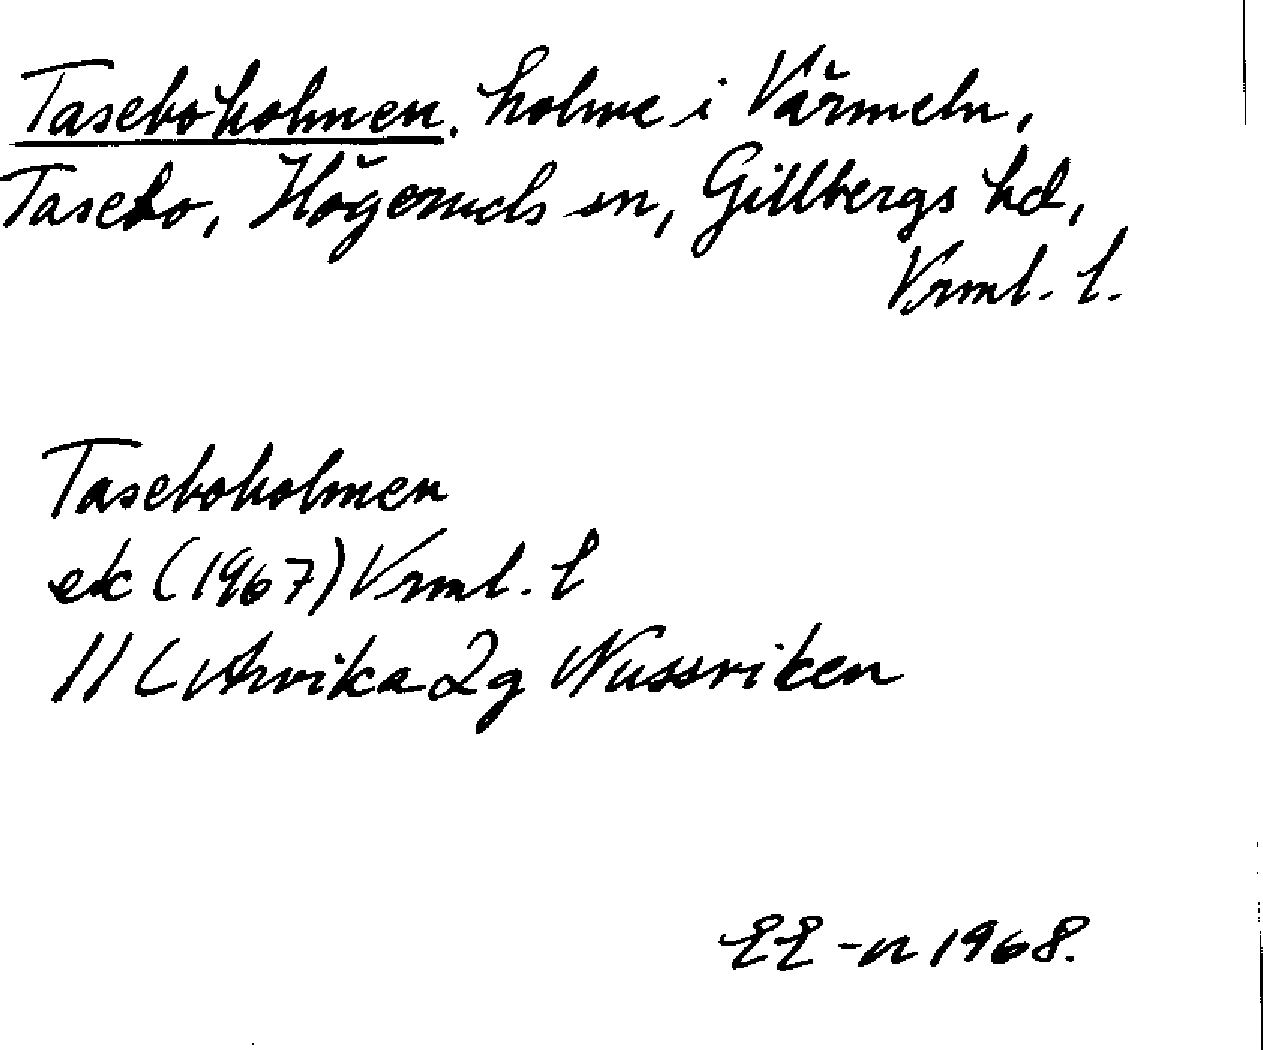 Taseboholmen. holme i Värmeln,
Tasebo, Högeruds sn, Gillbergs hd,
Vrml. l.
Taseboholmen
ek (1967) Vrml. l
11 C Arvika 2g Nussviken
EE-n 1968.